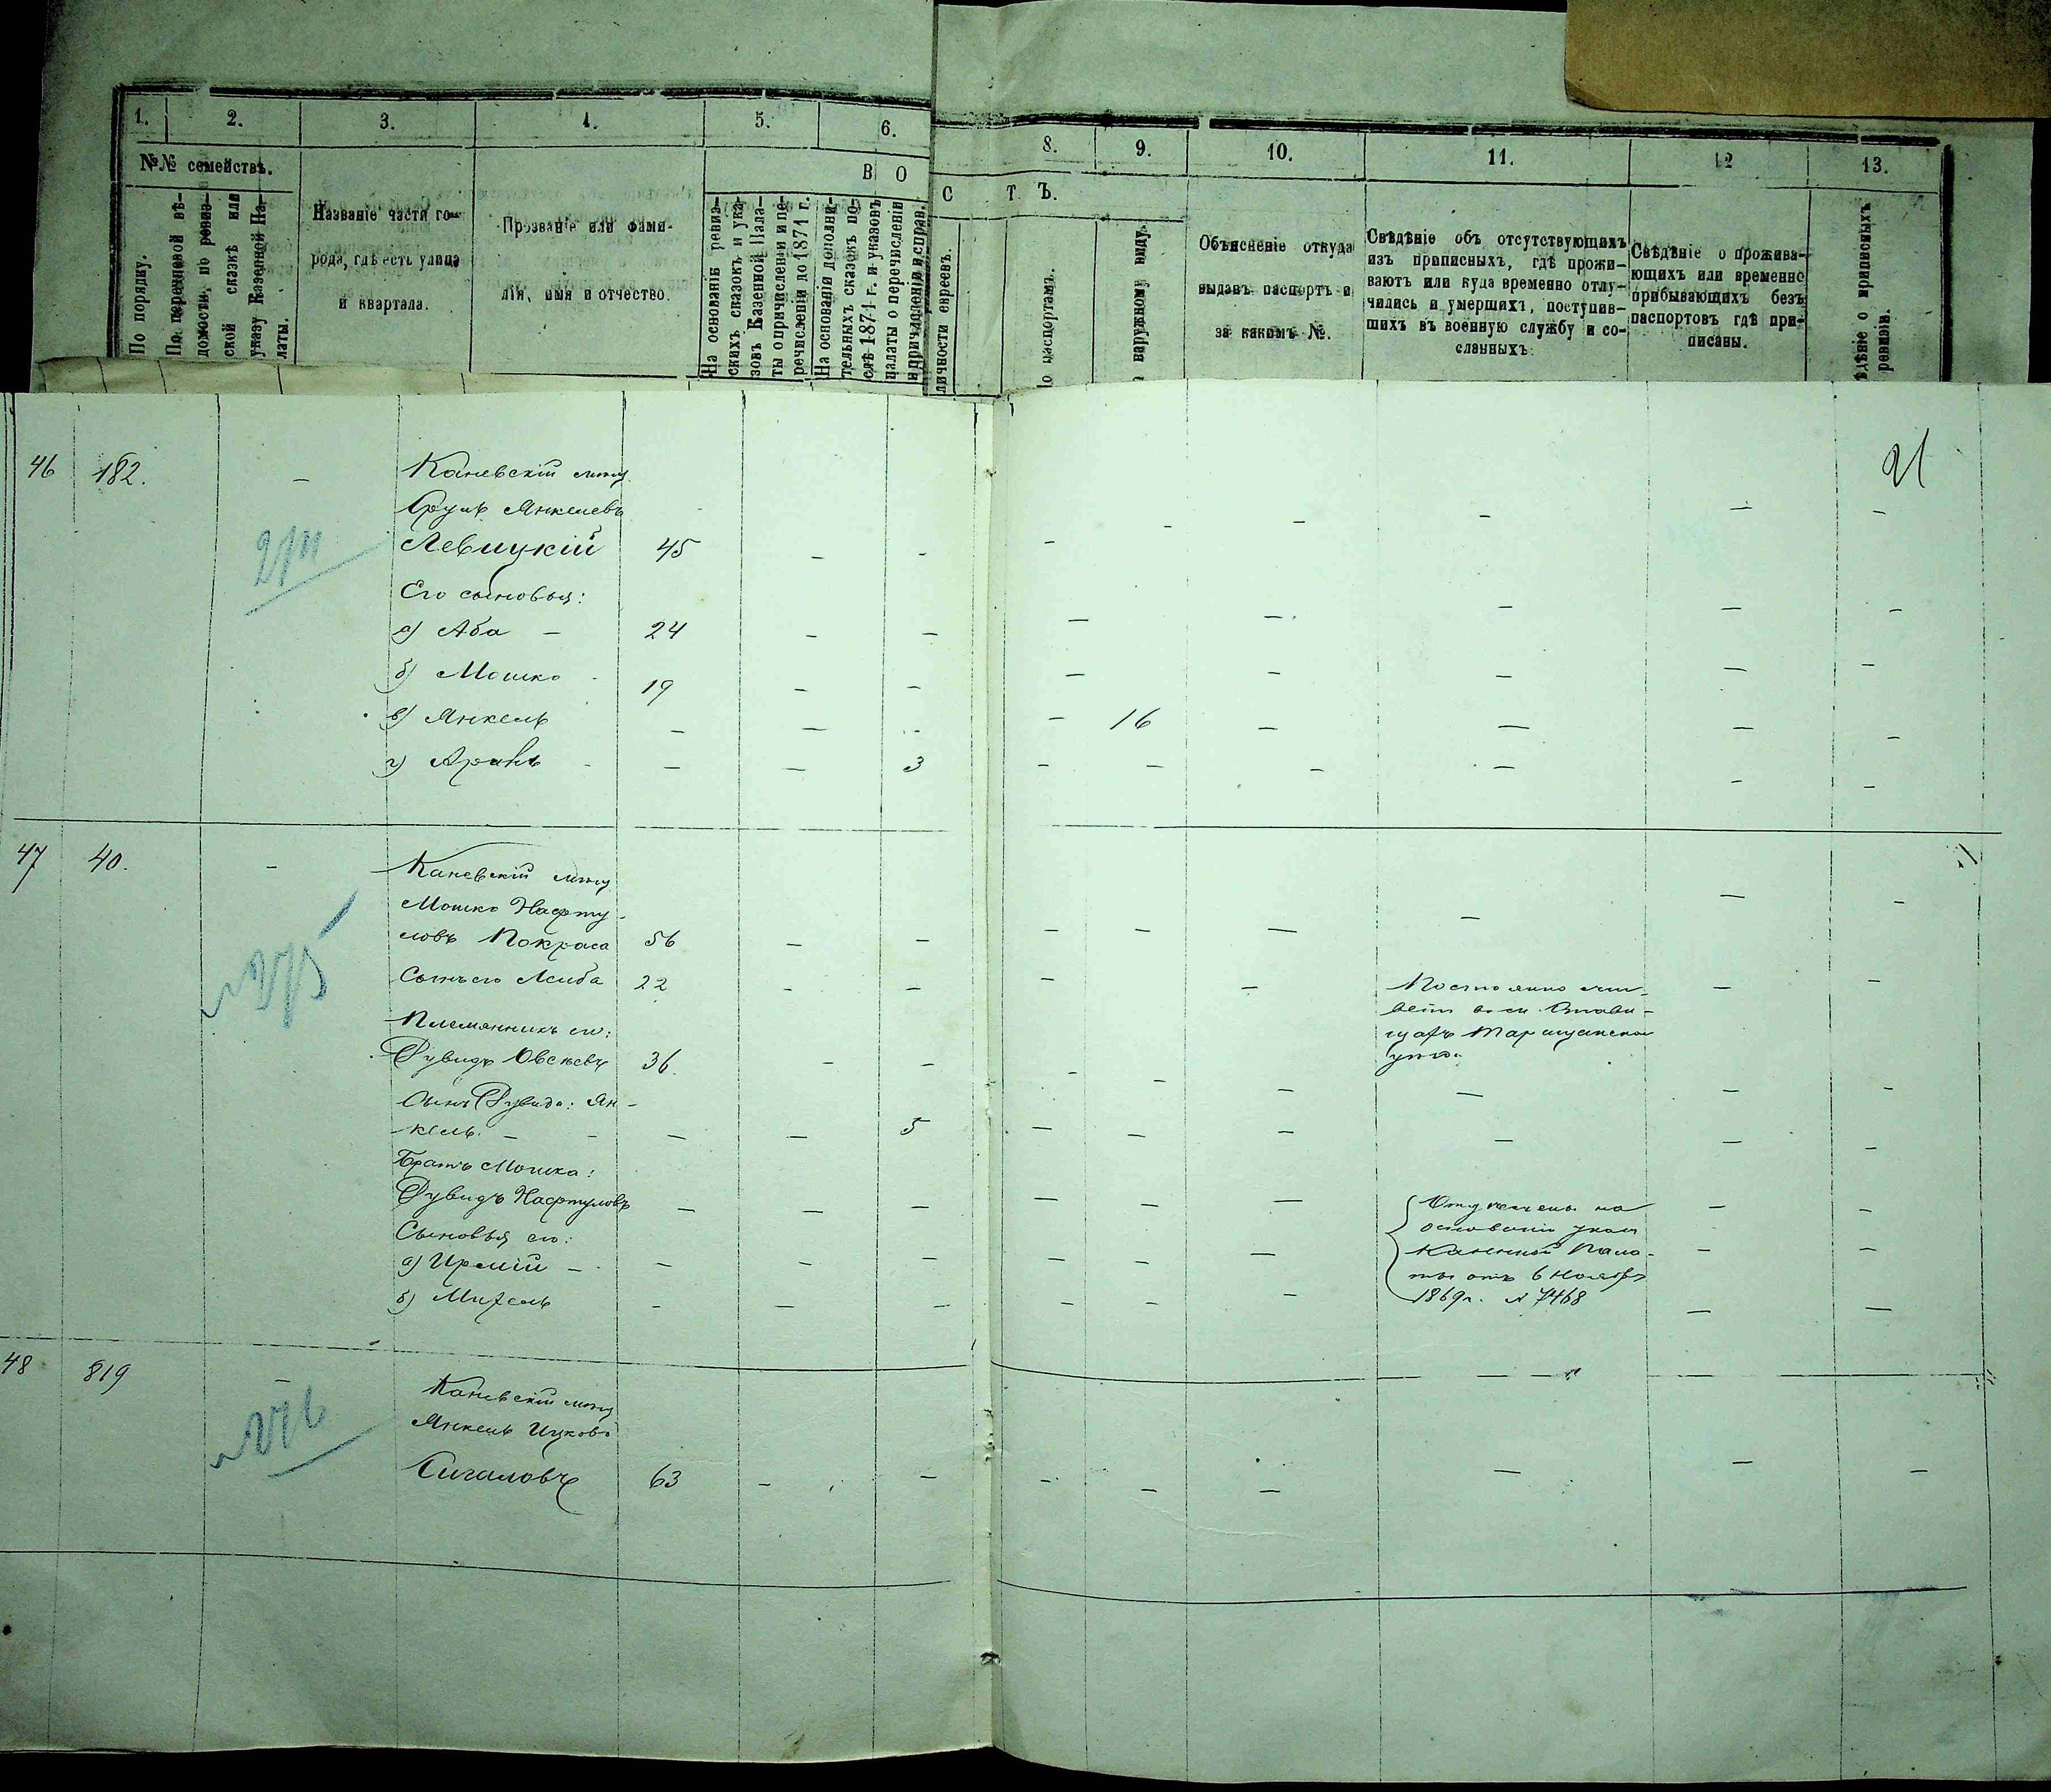 1. 2. 3. 4. 5. 6. 8. 9. 10. 11. 12 13.
№№ семействъ.
В О С Т Ъ.
По порядку.
По перечневой вѣ-
домости, по ревиз-
ской сказкѣ или
указу Казенной Па-
латы.
Названіе части го-
рода, гдѣ есть улица
и квартала.
Прозваніе или фами-
лія, имя и отчество.
На основаніи ревиз-
скихъ сказокъ и ука-
зовъ Казенной Пала-
ты о причисленіи и пе-
речисленіи до 1871 г.
На основаніи дополни-
тельныхъ сказокъ по-
слѣ 1871 г. и указовъ
палаты о перечисленіи
и причисленіи и справ.
личности евреевъ.
о паспортамъ.
наружному виду.
Объясненіе откуда
выданъ паспортъ и
за какимъ №.
Свѣдѣніе объ отсутствующихъ
изъ приписныхъ, гдѣ прожи-
ваютъ или куда временно отлу-
чились и умершихъ, поступив-
шихъ въ военную службу и со-
сланныхъ.
Свѣдѣніе о прожива-
ющихъ или временно
прибывающихъ безъ
паспортовъ гдѣ при-
писаны.
ѣдѣніе о приписныхъ
ревизіи.
21
46 182. — Каневскій мѣщ.
Сруль Янкелевъ
Левицкій 45 — — — — — — — —
Его сыновья:
а) Аба — 24 — — — — — — —
б) Мошко 19 — — — — — — —
в) Янкель — — — 16 — — — —
г) Аронъ — — 3 — — — — — —
47 40. — Каневскій мѣщ.
Мошко Нафту-
ловъ Покраса 56 — — — — — — — —
Сынъ его Лейба 22 — — — — Постоянно жи-
ветъ въ
Таращанскаго
уѣзда — —
Племянникъ его:
Дувидъ Овсѣевъ 36. — — — — — — — —
Сынъ Дувида: Ян-
кель. — — — 5 — — — — — —
Братъ Мошка:
Дувидъ Нафтуловъ — — — — — Отчислены на
основаніи указа
Казенной Пала-
ты отъ 6 Ноября
1869 г. № 7468
Сыновья его:
а) — — — — — — — — —
б) — — — — — — — —
48 819 — Каневскій мѣщ.
Янкель Ицковъ
Сигаловъ 63 — — — — — — — —